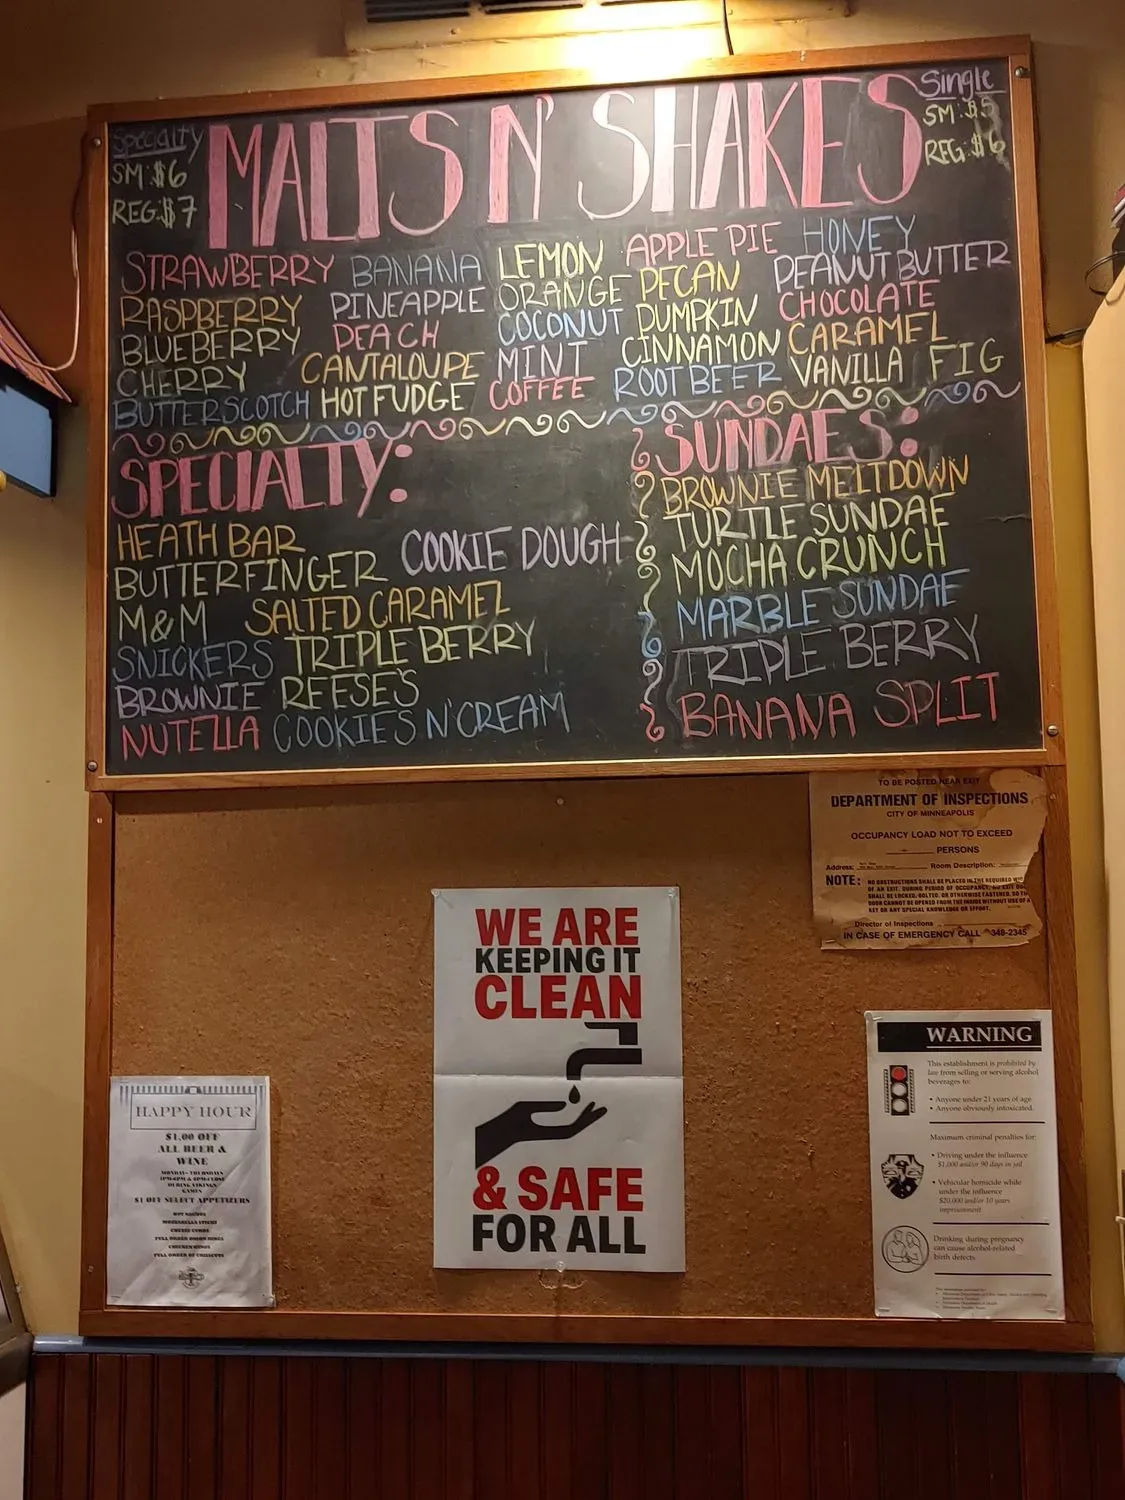 Specialty
SM: $6
REG: $7
MALTS N' SHAKES
Single
SM: $5
REG: $6
STRAWBERRY BANANA LEMON APPLE PIE HONEY
RASPBERRY PINEAPPLE ORANGE PECAN PEANUT BUTTER
BLUEBERRY PEACH COCONUT PUMPKIN CHOCOLATE
CHERRY CANTALOUPE MINT CINNAMON CARAMEL
BUTTERSCOTCH HOT FUDGE COFFEE ROOT BEER VANILLA FIG
SPECIALTY:
HEATH BAR
BUTTERFINGER COOKIE DOUGH
M&M SALTED CARAMEL
SNICKERS TRIPLE BERRY
BROWNIE REESE'S
NUTELLA COOKIES N' CREAM
SUNDAES:
BROWNIE MELTDOWN
TURTLE SUNDAE
MOCHA CRUNCH
MARBLE SUNDAE
TRIPLE BERRY
BANANA SPLIT
TO BE POSTED NEAR EXIT
DEPARTMENT OF INSPECTIONS
CITY OF MINNEAPOLIS
OCCUPANCY LOAD NOT TO EXCEED
PERSONS
Address: Room Description:
NOTE: NO OBSTRUCTIONS SHALL BE PLACED IN THE REQUIRED
OF AN EXIT. DURING PERIOD OF OCCUPANCY, NO EXIT
SHALL BE LOCKED, BOLTED, OR OTHERWISE FASTENED, SO
DOOR CANNOT BE OPENED FROM THE INSIDE WITHOUT USE OF A
KEY OR ANY SPECIAL KNOWLEDGE OR EFFORT.
Director of Inspections
IN CASE OF EMERGENCY CALL 348-2345
WE ARE
KEEPING IT
CLEAN
& SAFE
FOR ALL
HAPPY HOUR
$1.00 OFF
ALL BEER &
WINE
MONDAY- THURSDAYS
DURING VIKINGS
GAMES
$1 OFF SELECT APPETIZERS
MOZZARELLA STICKS
CHEESE CURDS
FULL ORDER ONION RINGS
CHICKEN WINGS
WARNING
This establishment is prohibited by
law from selling or serving alcohol
beverages to:
• Anyone under 21 years of age
• Anyone obviously intoxicated.
Maximum criminal penalties for:
• Driving under the influence
$1,000 and/or 90 days in jail
• Vehicular homicide while
under the influence
$20,000 and/or 10 years
imprisonment
Drinking during pregnancy
can cause alcohol-related
birth defects.